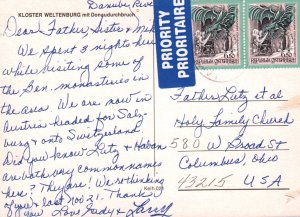 Danube River
KLOSTER WELTENBURG mit Donaudurchbruch
Dear Father Sister + Mike
We spent 3 nights here
while visiting some of
the Ben. monasteries in
the area. We are now in
Austria headed for Salz-
burg + onto Switzerland.
Did you know Lutz + Haban
are both very common names
here? They are! We're thinking
of you + last 2002. Thanks
if you Love Judy + Larry
PRIORITY
PRIORITAIRE
REPUBLIK ÖSTERREICH
REPUBLIK ÖSTERREICH
Father Lutz et al
Holy Family Church
580 W Broad St
Columbus, Ohio
43215 USA
Kelh 028